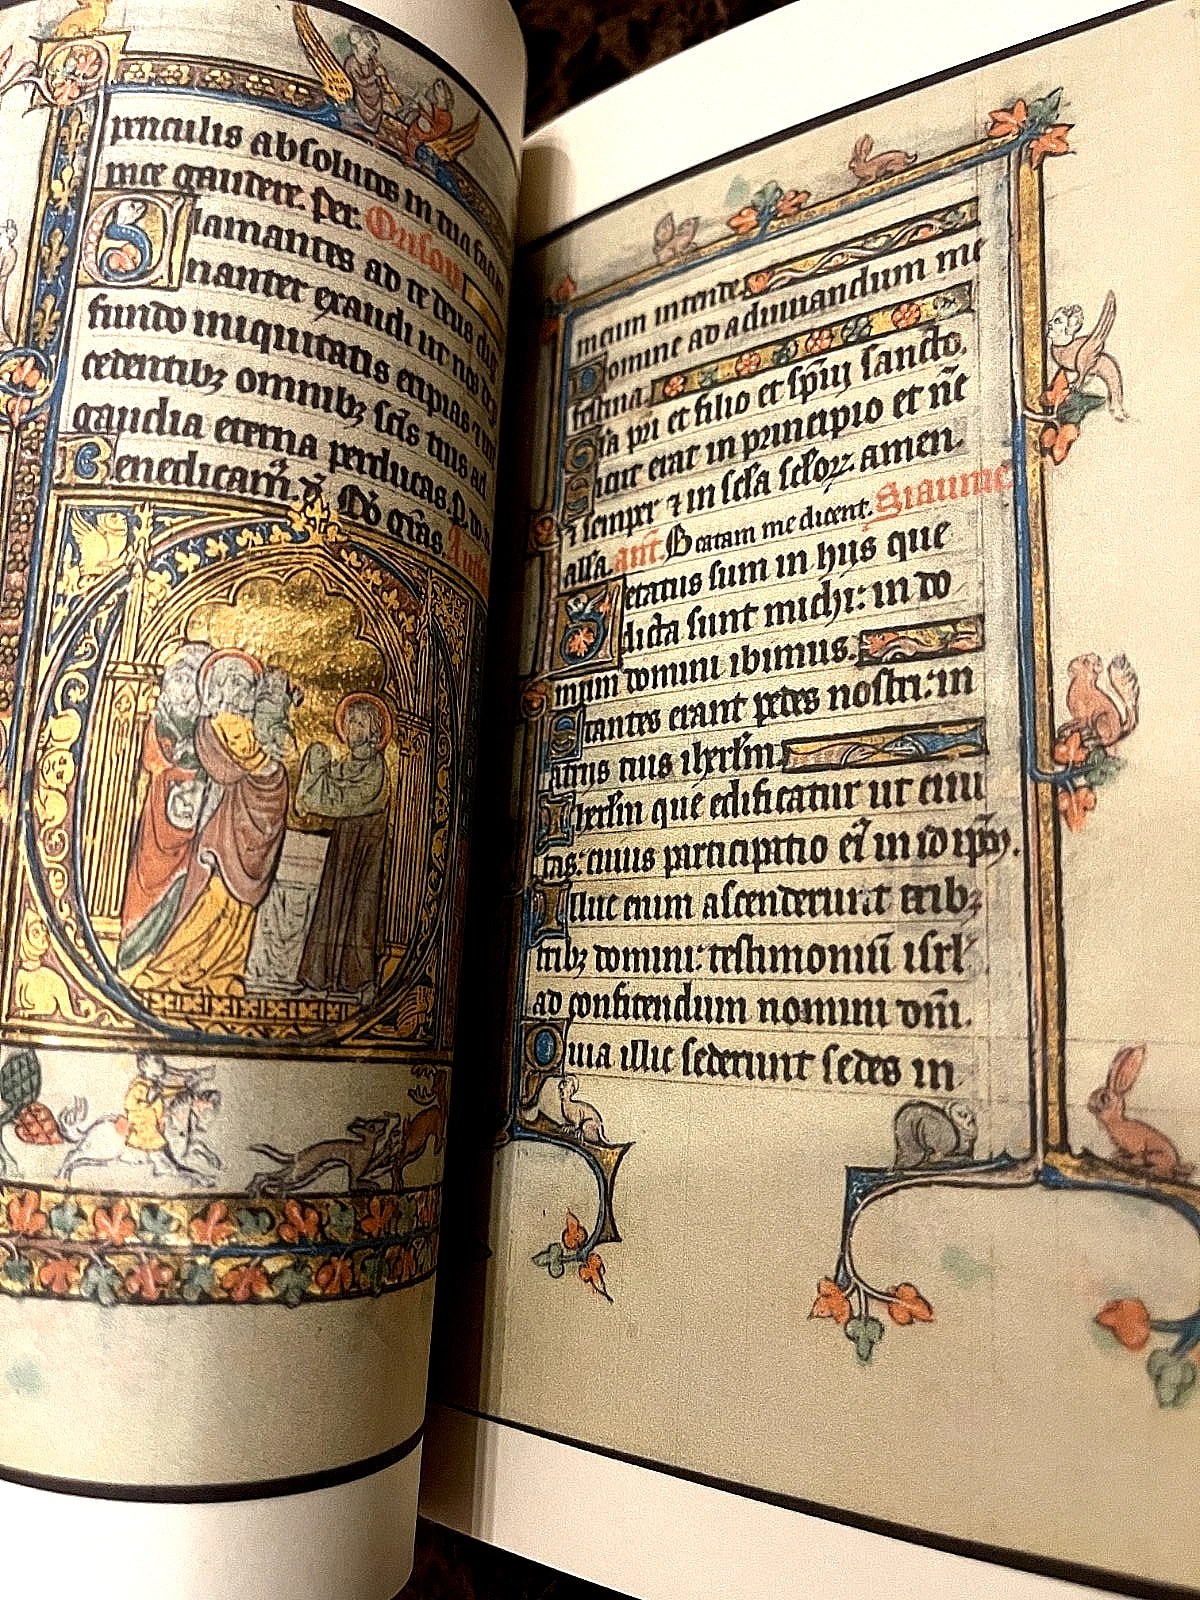 penculis absolutos in tua
ince gaudere. Per.
Clamantes ad te deus
nanter exaudi ut nos
fundo iniquitatis eripias ⁊
cedentibꝫ omnibꝫ scīs tuis ad
gaudia eterna perducas. P.
Benedicam̄.
meum intende.
Domine ad adiuuandum me
festina.
Gl̄a pr̄i et filio et sp̄ui sancto.
Sicut erat in principio et nc̄
⁊ semper ⁊ in scl̄a scl̄oꝝ. amen.
all̄a. ant̄. Beatam me dicent.
Letatus sum in hijs que
dicta sunt michi: in do
mum domini ibimus.
Stantes erant pedes nostri: in
atrijs tuis ihrl̄m.
Ihrl̄m que edificatur ut ciui
tas: cuius participatio eī in id ip̄m.
Illuc enim ascenderunt tribꝫ
tribꝫ domini: testimoniū isrl̄
ad confitendum nomini dn̄i.
Quia illic sederunt sedes in